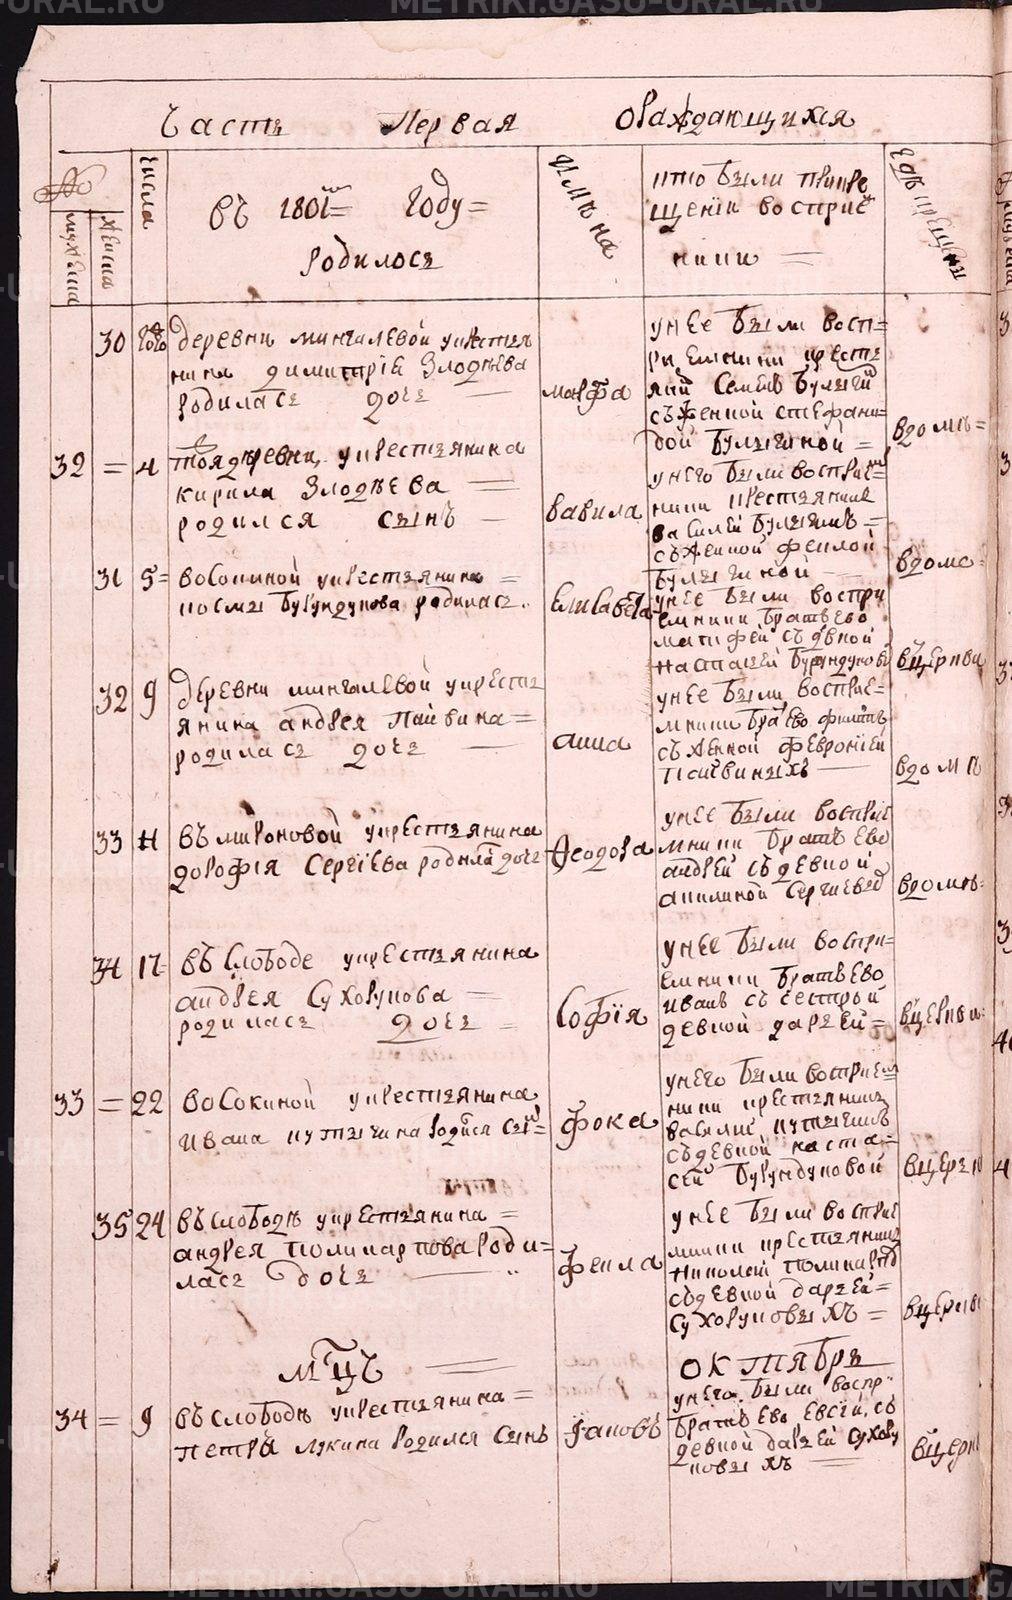 METRIKI.GASO-URAL.RU
METRIKI.GASO-URAL.RU
Часть Первая ораждающихся
№
мужеска
женска
числа
въ 1801м году
родилось
имѣна
кто были при кре
щенiи восприе
ники
гдѣ крещены
30
деревни мингалевой у крестья
нина димитрiя Злодѣева
родилась дочь
марѳа
у нее были восп
риемники кресть
янин Семенъ булыгин
съ женной стефани
дой булыгиной
в доме
32 4 той деревни у крестьянина
кирила Злодѣева
родился сынъ
вавила
у него были восприем
ники крестьянинъ
василей булыгинъ
съ женной феклой
булыгиной
в доме
31 5 во Сокиной у крестьянина
козмы бурундукова родилась
Елисавета
у нее были воспри
емники братъ ево
матфей съ девкой
настасьей бурундуковы
в церкви
32 9 деревни мингалевой у кресть
янина андрея пайвина
родилась дочь
анна
у нее были восприе
мники братъ ево филипъ
съ женной феврониеи
пайвиныхъ
в доме
33 11 въ мироновой у крестьянина
дорофiя Сергiева родилась дочь
Ѳеодора
у нее были восприе
мники братъ ево
андрей съ девкой
акилиной Сергиевой
в доме
34 17 въ Слободе у крестьянина
андрея Сухорукова
родилась дочь
Софiя
у нее были воспри
емники братъ ево
иванъ съ сестрой
девкой дарьей
в церкви
33 22 во Сокиной у крестьянина
ивана кутыгина родился сынъ
фока
у него были восприем
ники крестьянинъ
василий кутыгинъ
съ девкой наста
сеи бурундуковой
в церкв
35 24 въ слободѣ у крестьянина
андрея поликарпова роди
лась дочь
фекла
у нее были восприе
мники крестьянинъ
николай поликарпов
съ девкой дарьей
Сухоруковыхъ
в церкви
мцъ октябрь
34 9 въ слободѣ у крестьянина
петра лукина родился сынъ
Iаковъ
у него были воспр
братъ ево Евсей съ
девкой дарьей Сухору
ковыхъ
в церк
METRIKI.GASO-URAL.RU